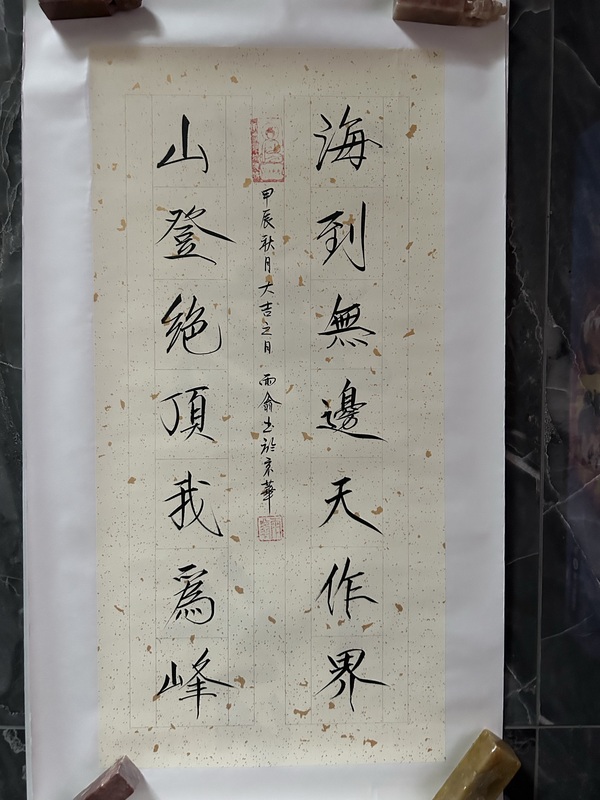 海到無邊天作界
山登絕頂我為峰
甲辰秋月大吉之日 雨俞书於京華